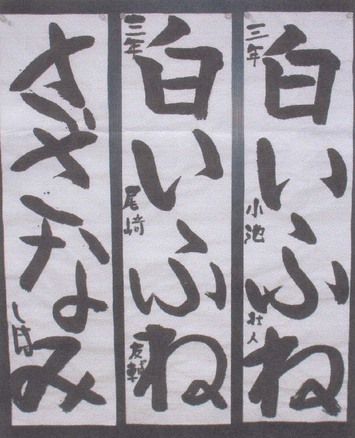 白いふね
三年 小池 壮人
白いふね
三年 尾崎 友軌
さざなみ
しほ